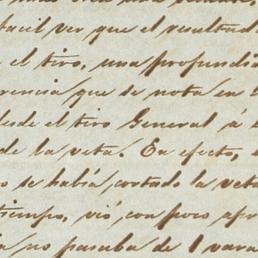 facil ver que el resultad
el tiro, una profundi
rencia que se nota en
desde el tiro General á
de la veta. En efecto,
se había cortado la veta
tiempo, vió, con poco apr
no pasaba de 1 vara